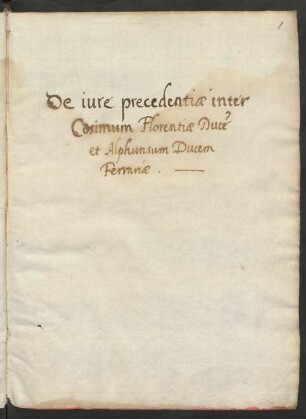 1
De iure precedentiæ inter
Cosimum Florentiæ Ducẽ
et Alphunsum Ducem
Ferrariæ .